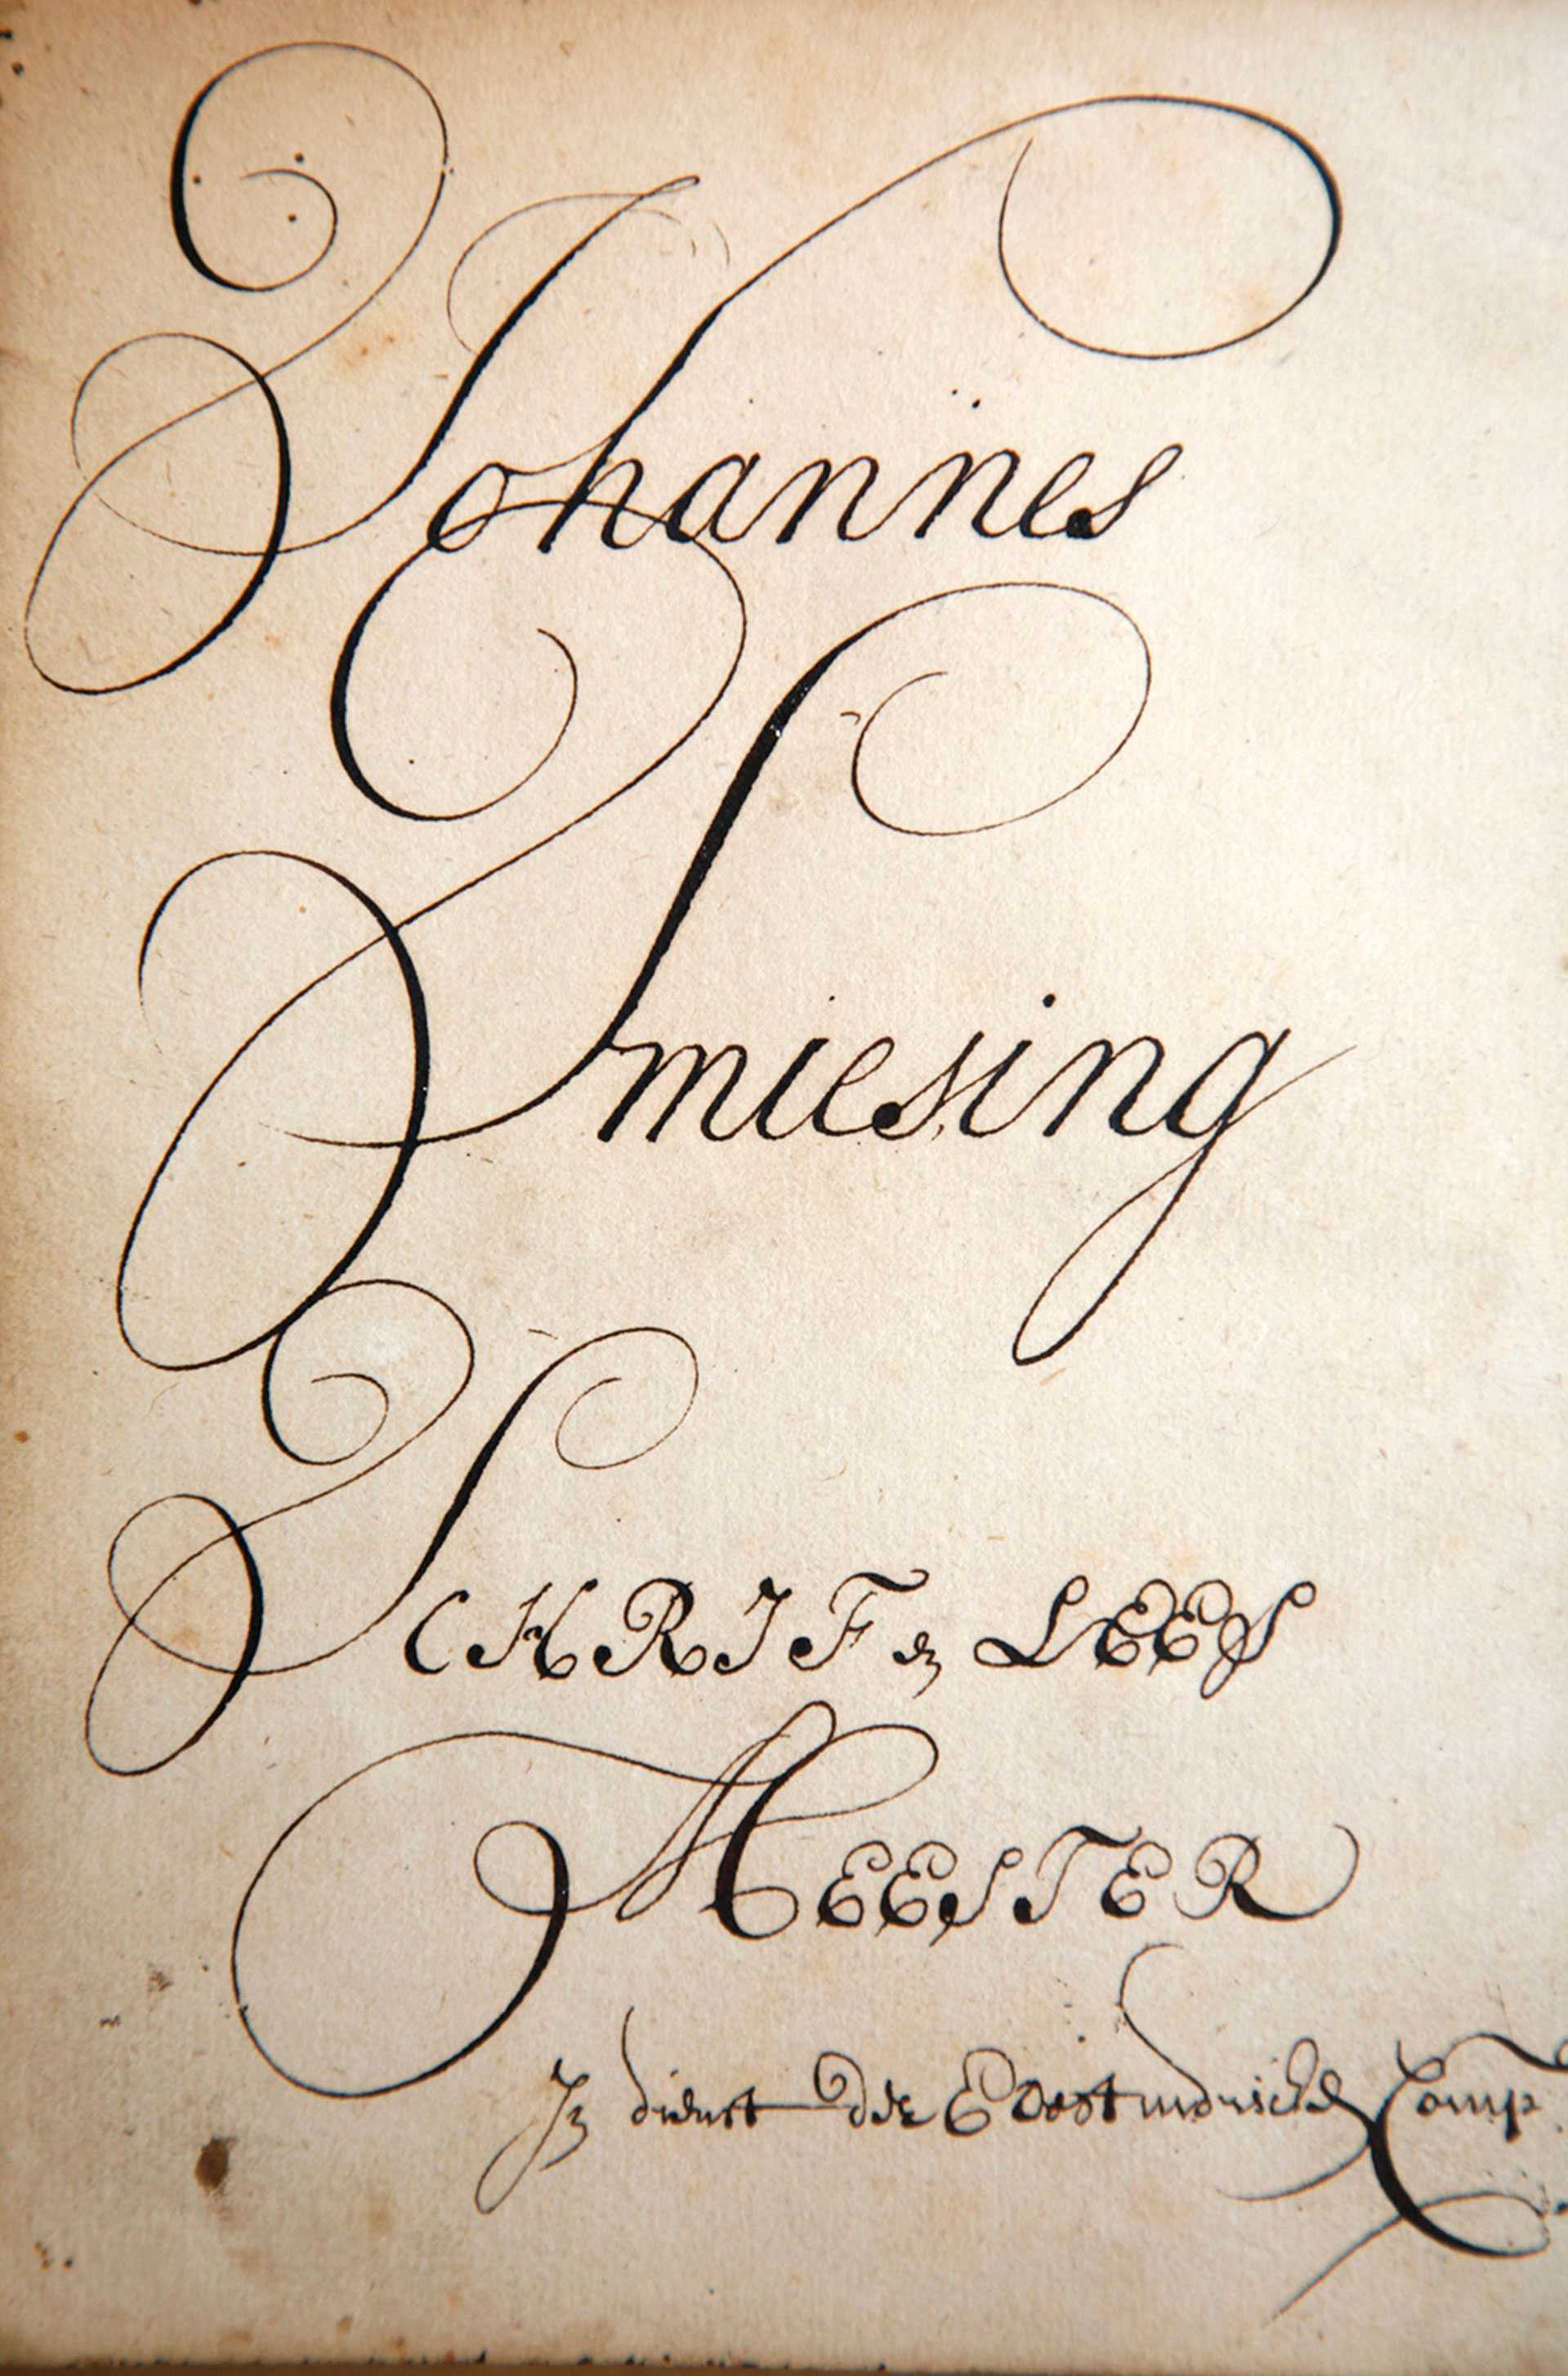 Johannes
Smiesing
SCHRIF & LEES
MEESTER
In dienst der E Oost indische Comp